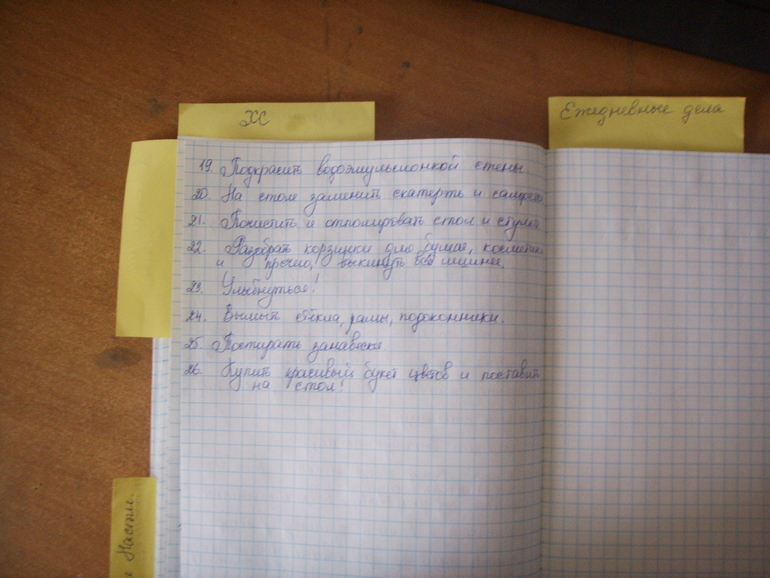 ХС
Ежедневные дела
19. Подкрасить водоэмульсионкой стены.
20. На столе заменить скатерть и салфетки
21. Почистить и отполировать стол и стулья.
22. Разобрать корзинки для бумаг, косметики
и прочего, выкинуть всё лишнее.
23. Улыбнуться!
24. Вымыть стёкла, рамы, подоконники.
25. Постирать занавески.
26. Купить красивый букет цветов и поставить
на стол!
Насти.